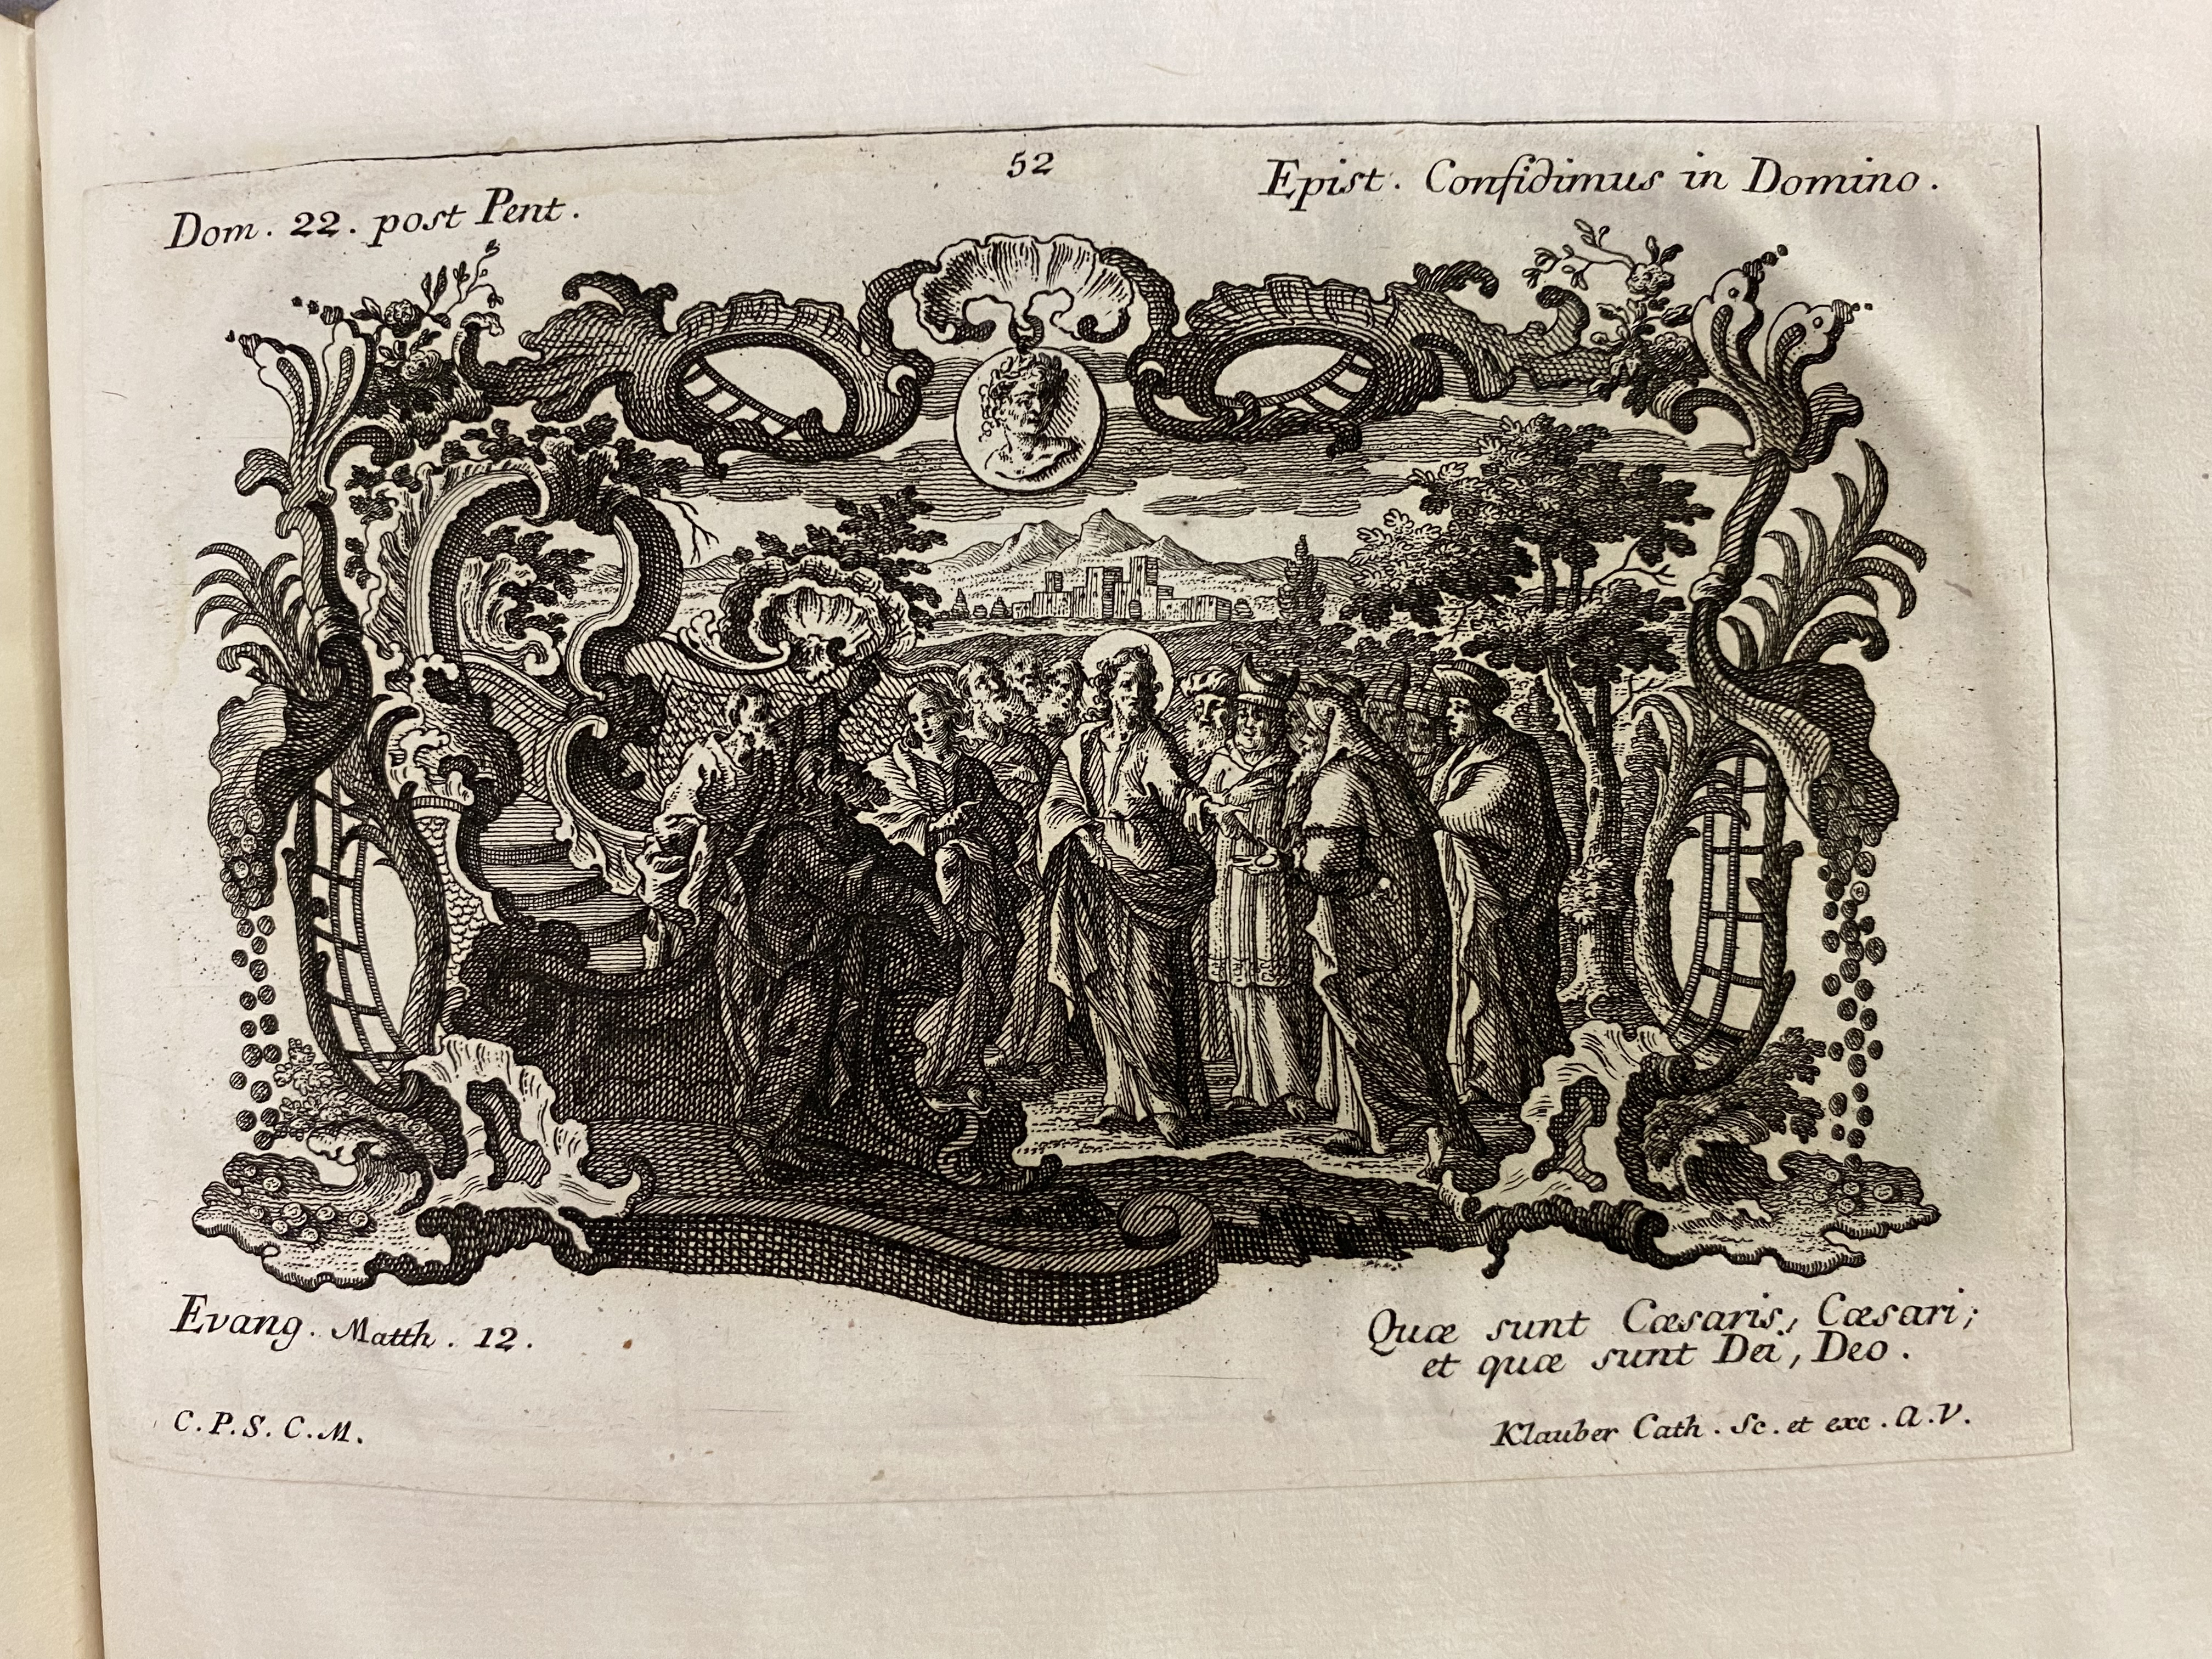 52
Dom. 22. post Pent.
Epist. Confidimus in Domino.
Evang. Matth. 12.
Quæ sunt Cæsaris, Cæsari;
et quæ sunt Dei, Deo.
C.P.S.C.M.
Klauber Cath. Sc. et exc. A.V.